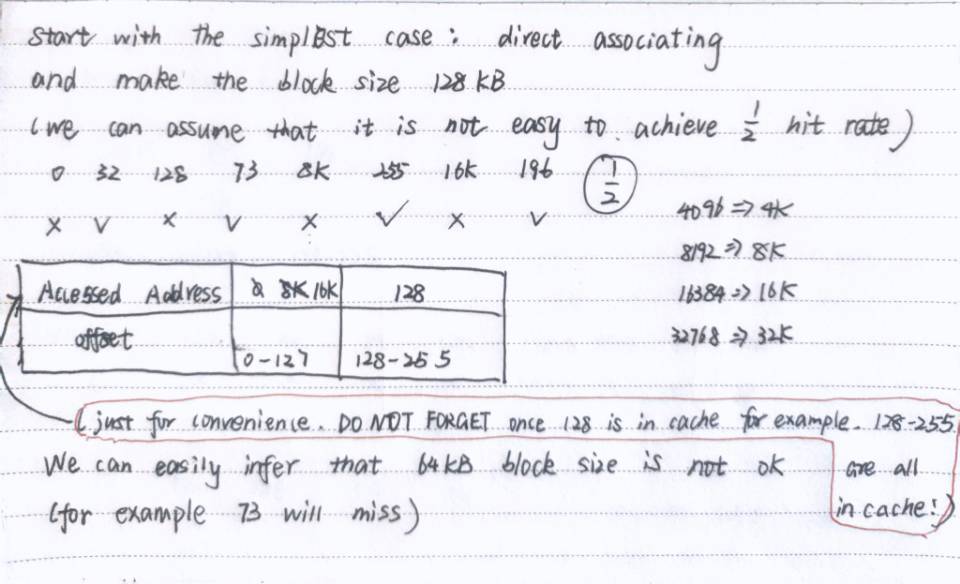 start with the simplest case : direct associating
and make the block size 128 KB
(we can assume that it is not easy to achieve 1/2 hit rate)
0 32 128 73 8K 255 16K 196 1/2
x v x v x ✓ x v
4096 => 4K
8192 => 8K
16384 => 16K
32768 => 32K
Accessed Address 0 8K 16K 128
offset 0-127 128-255
(just for convenience. DO NOT FORGET once 128 is in cache for example. 128-255
are all
in cache!)
We can easily infer that 64KB block size is not ok
(for example 73 will miss)